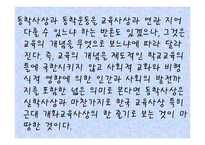 동학사상과 동학운동을 교육사상과 연관 지어
다룰 수 있느냐 하는 반론도 있겠으나, 그것은
교육의 개념을 무엇으로 보느냐에 따라 달라
진다. 즉, 교육의 개념을 제도적인 학교교육의
틀에 국한시키지 않고 사회적 교화와 비형
식적 영향에 의한 인간과 사회의 발전까
지를 포함한 넓은 의미로 본다면 동학사상은
실학사상과 마찬가지로 한국 교육사상 특히
근대 개화교육사상의 한 줄기로 보는 것이 마
땅한 것이다.